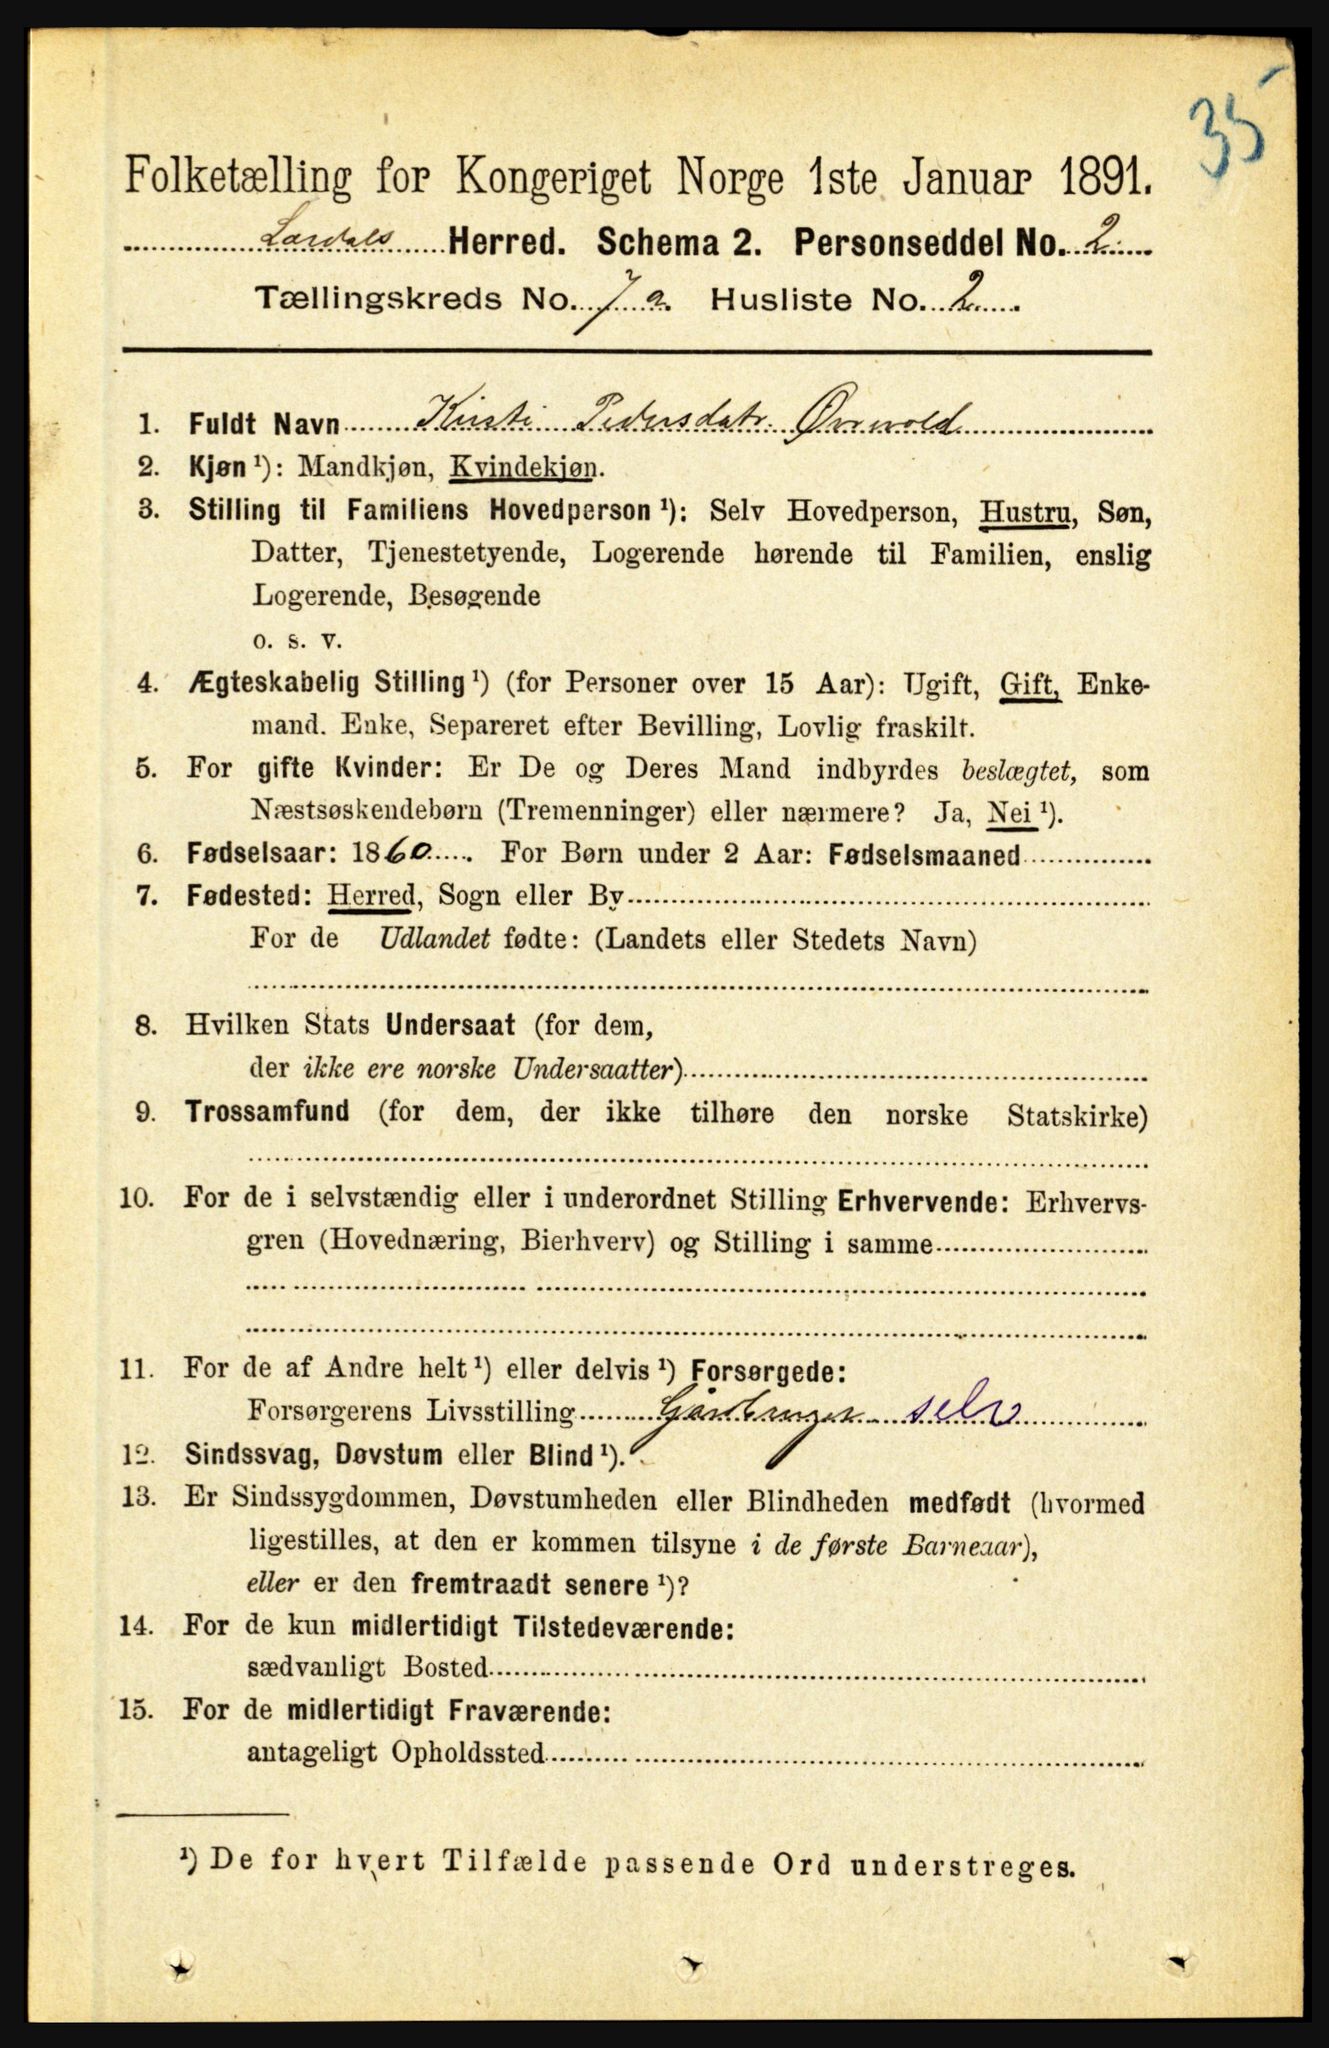 35
Folketælling for Kongeriget Norge 1ste Januar 1891.
Lardals Herred. Schema 2. Personseddel No. 2
Tællingskreds No. 7 a. Husliste No. 2
1. Fuldt Navn Kirsti Pedersdatr. Øvrevold
2. Kjøn ¹): Mandkjøn, Kvindekjøn.
3. Stilling til Familiens Hovedperson ¹): Selv Hovedperson, Hustru, Søn,
Datter, Tjenestetyende, Logerende hørende til Familien, enslig
Logerende, Besøgende
o. s. v.
4. Ægteskabelig Stilling ¹) (for Personer over 15 Aar): Ugift, Gift, Enke-
mand. Enke, Separeret efter Bevilling, Lovlig fraskilt.
5. For gifte Kvinder: Er De og Deres Mand indbyrdes beslægtet, som
Næstsøskendebørn (Tremenninger) eller nærmere? Ja, Nei ¹).
6. Fødselsaar: 1860. For Børn under 2 Aar: Fødselsmaaned
7. Fødested: Herred, Sogn eller By
For de Udlandet fødte: (Landets eller Stedets Navn)
8. Hvilken Stats Undersaat (for dem,
der ikke ere norske Undersaatter)
9. Trossamfund (for dem, der ikke tilhøre den norske Statskirke)
10. For de i selvstændig eller i underordnet Stilling Erhvervende: Erhvervs-
gren (Hovednæring, Bierhverv) og Stilling i samme
11. For de af Andre helt ¹) eller delvis ¹) Forsørgede:
Forsørgerens Livsstilling Gårdbruger selv
12. Sindssvag, Døvstum eller Blind ¹).
13. Er Sindssygdommen, Døvstumheden eller Blindheden medfødt (hvormed
ligestilles, at den er kommen tilsyne i de første Barneaar),
eller er den fremtraadt senere ¹)?
14. For de kun midlertidigt Tilstedeværende:
sædvanligt Bosted
15. For de midlertidigt Fraværende:
antageligt Opholdssted
¹) De for hvert Tilfælde passende Ord understreges.